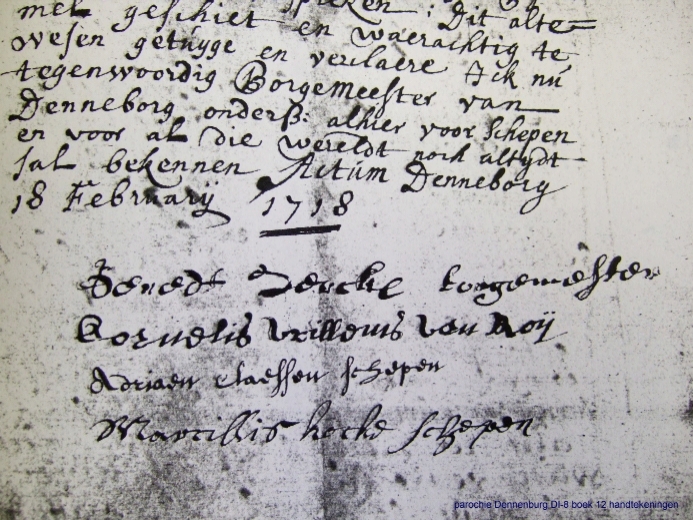 met geschiet en spreken: Dit alte=
wesen getuyge en verclaere Ick nú
tegenwoordig Borgemeester van
Denneborg onderß: alhier voor Schepen
en voor al die wereldt noch altydt
sal bekennen Actúm Denneborg
18 Februarij 1718
borgemeester
kornelis willems van Roij
Adriaen Claessen schepen
Marcillis schepen
parochie Dennenburg DI-8 boek 12 handtekeningen